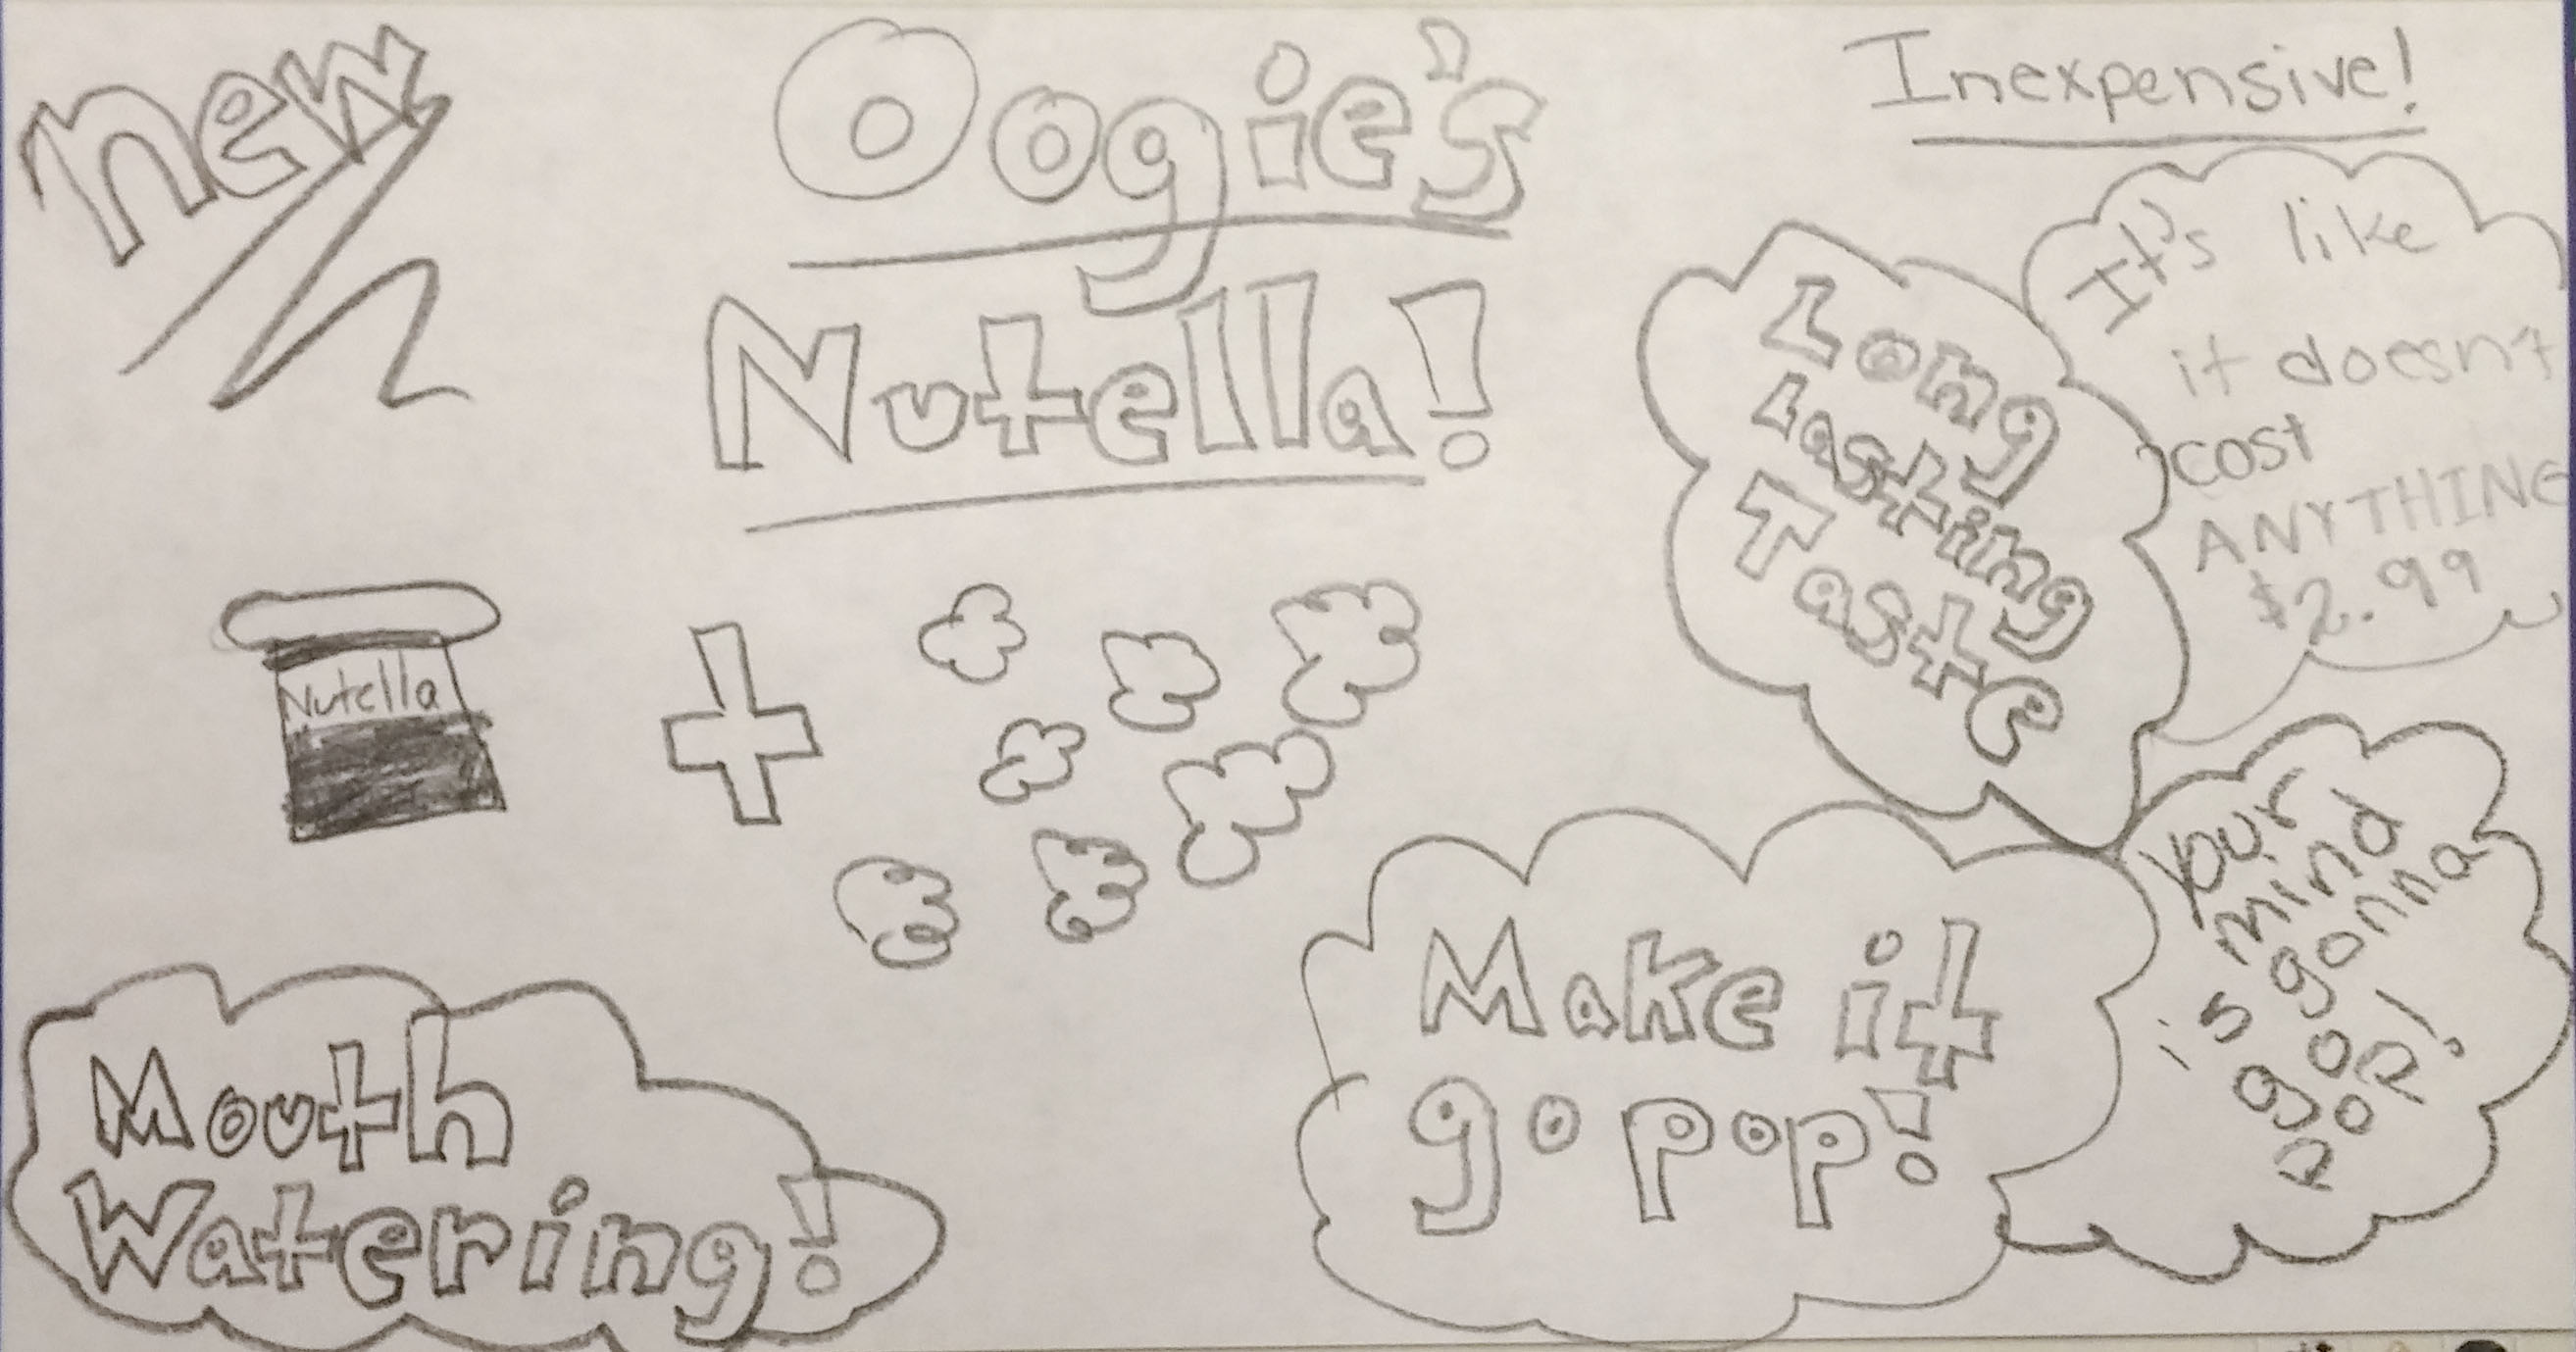 new
Oogie's
Nutella!
Inexpensive!
It's like
it doesn't
cost
ANYTHING
$2.99
Long
Lasting
Taste
Nutella
Your
mind
is gonna
go
pop!
Make it
go pop!
Mouth
Watering!